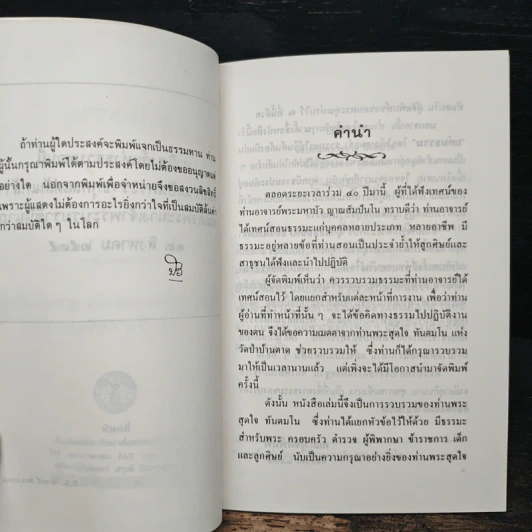 ถ้าท่านผู้ใดประสงค์จะพิมพ์แจกเป็นธรรมทาน ท่าน
ผู้นั้นกรุณาพิมพ์ได้ตามประสงค์โดยไม่ต้องขออนุญาตแต่
อย่างใด นอกจากพิมพ์เพื่อจำหน่ายจึงขอสงวนลิขสิทธิ์
เพราะผู้แสดงไม่ต้องการอะไรยิ่งกว่าใจที่เป็นสมบัติอันล้ำ
กว่าสมบัติใด ๆ ในโลก
คำนำ
ตลอดระยะเวลาร่วม ๔๐ ปีมานี้ ผู้ที่ได้ฟังเทศน์ของ
ท่านอาจารย์พระมหาบัว ญาณสัมปันโน ทราบดีว่า ท่านอาจารย์
ได้เทศน์สอนธรรมะแก่บุคคลหลายประเภท หลายอาชีพ มี
ธรรมะอยู่หลายข้อที่ท่านสอนเป็นประจำย้ำให้ลูกศิษย์และ
สาธุชนได้ฟังและนำไปปฏิบัติ
ผู้จัดพิมพ์เห็นว่า ควรรวบรวมธรรมะที่ท่านอาจารย์ได้
เทศน์สอนไว้ โดยแยกสำหรับแต่ละหน้าที่การงาน เพื่อว่าท่าน
ผู้อ่านที่ทำหน้าที่นั้น ๆ จะได้ข้อคิดทางธรรมไปปฏิบัติงาน
ของตน จึงได้ขอความเมตตาจากท่านพระสุดใจ ทันตมโน แห่ง
วัดป่าบ้านตาด ช่วยรวบรวมให้ ซึ่งท่านก็ได้กรุณารวบรวม
มาให้เป็นเวลานานแล้ว แต่เพิ่งจะได้มีโอกาสนำมาจัดพิมพ์
ครั้งนี้
ดังนั้น หนังสือเล่มนี้จึงเป็นการรวบรวมของท่านพระ
สุดใจ ทันตมโน ซึ่งท่านได้แยกหัวข้อไว้ให้ด้วย มีธรรมะ
สำหรับพระ ครอบครัว ตำรวจ ผู้พิพากษา ข้าราชการ เด็ก
และลูกศิษย์ นับเป็นความกรุณาอย่างยิ่งของท่านพระสุดใจ